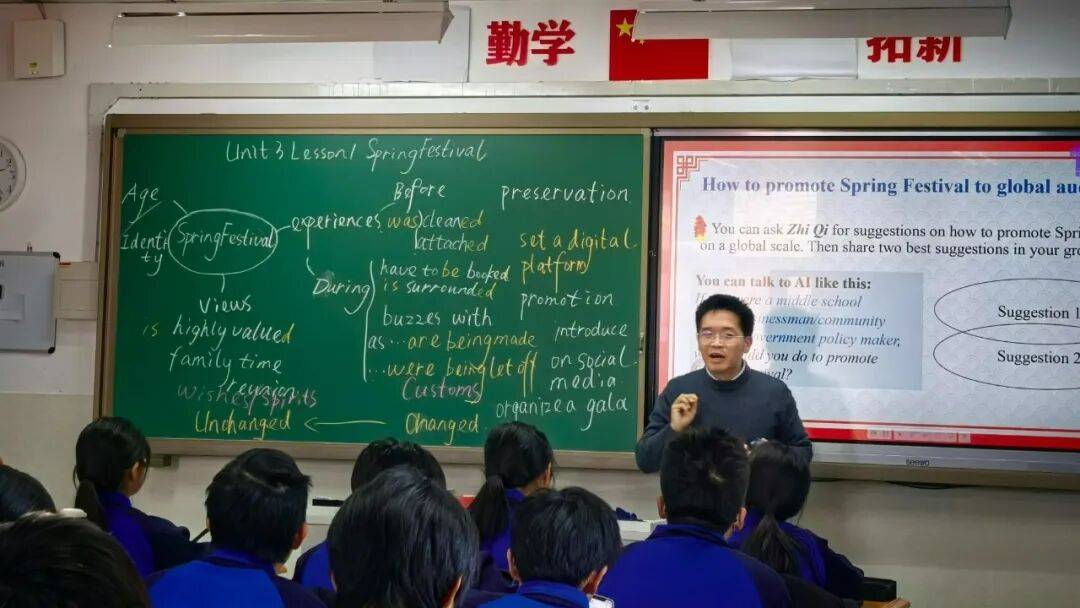 勤学
拓新
Unit 3 Lesson 1 Spring Festival
Age
Identity
Spring Festival
experiences
Before
was cleaned
attached
During
have to be booked
is surrounded
buzzes with
as ... are being made
... were being let off
Customs
Changed
Views
is highly valued
family time
reunion
wishes spirits
Unchanged
preservation
set a digital
platform
promotion
introduce
on social
media
organize a gala
How to promote Spring Festival to global
You can ask Zhi Qi for suggestions on how to promote
on a global scale. Then share two best suggestions in your
You can talk to AI like this:
were a middle school
community
government policy maker,
you do to promote
Suggestion 1
Suggestion 2
seewo